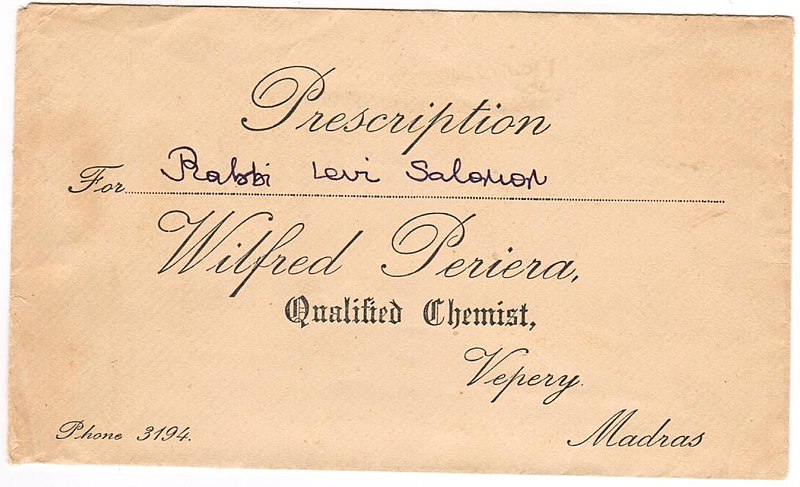 Prescription
For Rabbi Levi Salomon
Wilfred Periera,
Qualified Chemist,
Vepery.
Phone 3194. Madras